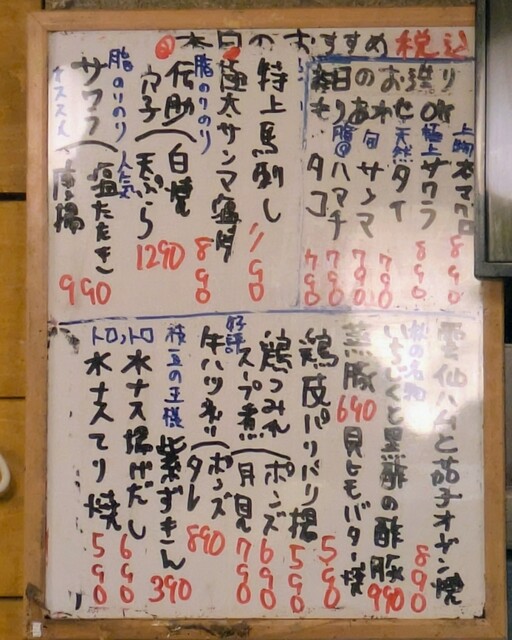 本日のおすすめ 税込
本日のお造り
もりあわせ OK
上物 本マグロ 890
極上 サワラ 890
天然 タイ 790
旬 サンマ 790
脂◎ ハマチ 790
タコ 790
特上馬刺し 1190
脂のりのり 極太サンマ塩焼 890
伝助穴子(白焼 天ぷら 1290
脂のりのり 人気
オススメ サワラ(塩たたき 唐揚 990
雲仙ハムと茄子オーブン焼 890
秋の名物 いちじくと黒酢の酢豚 990
蒸豚 640 貝ヒモバター焼 590
鶏皮パリパリ揚 590
鶏つみれ(ポンズ 690
好評 スープ煮(月見 790
牛ハツ(ポンズ タレ 890
枝豆の王様 紫ずきん 390
トロットロ 水ナス揚げだし 690
トロットロ 水ナステリ焼 590